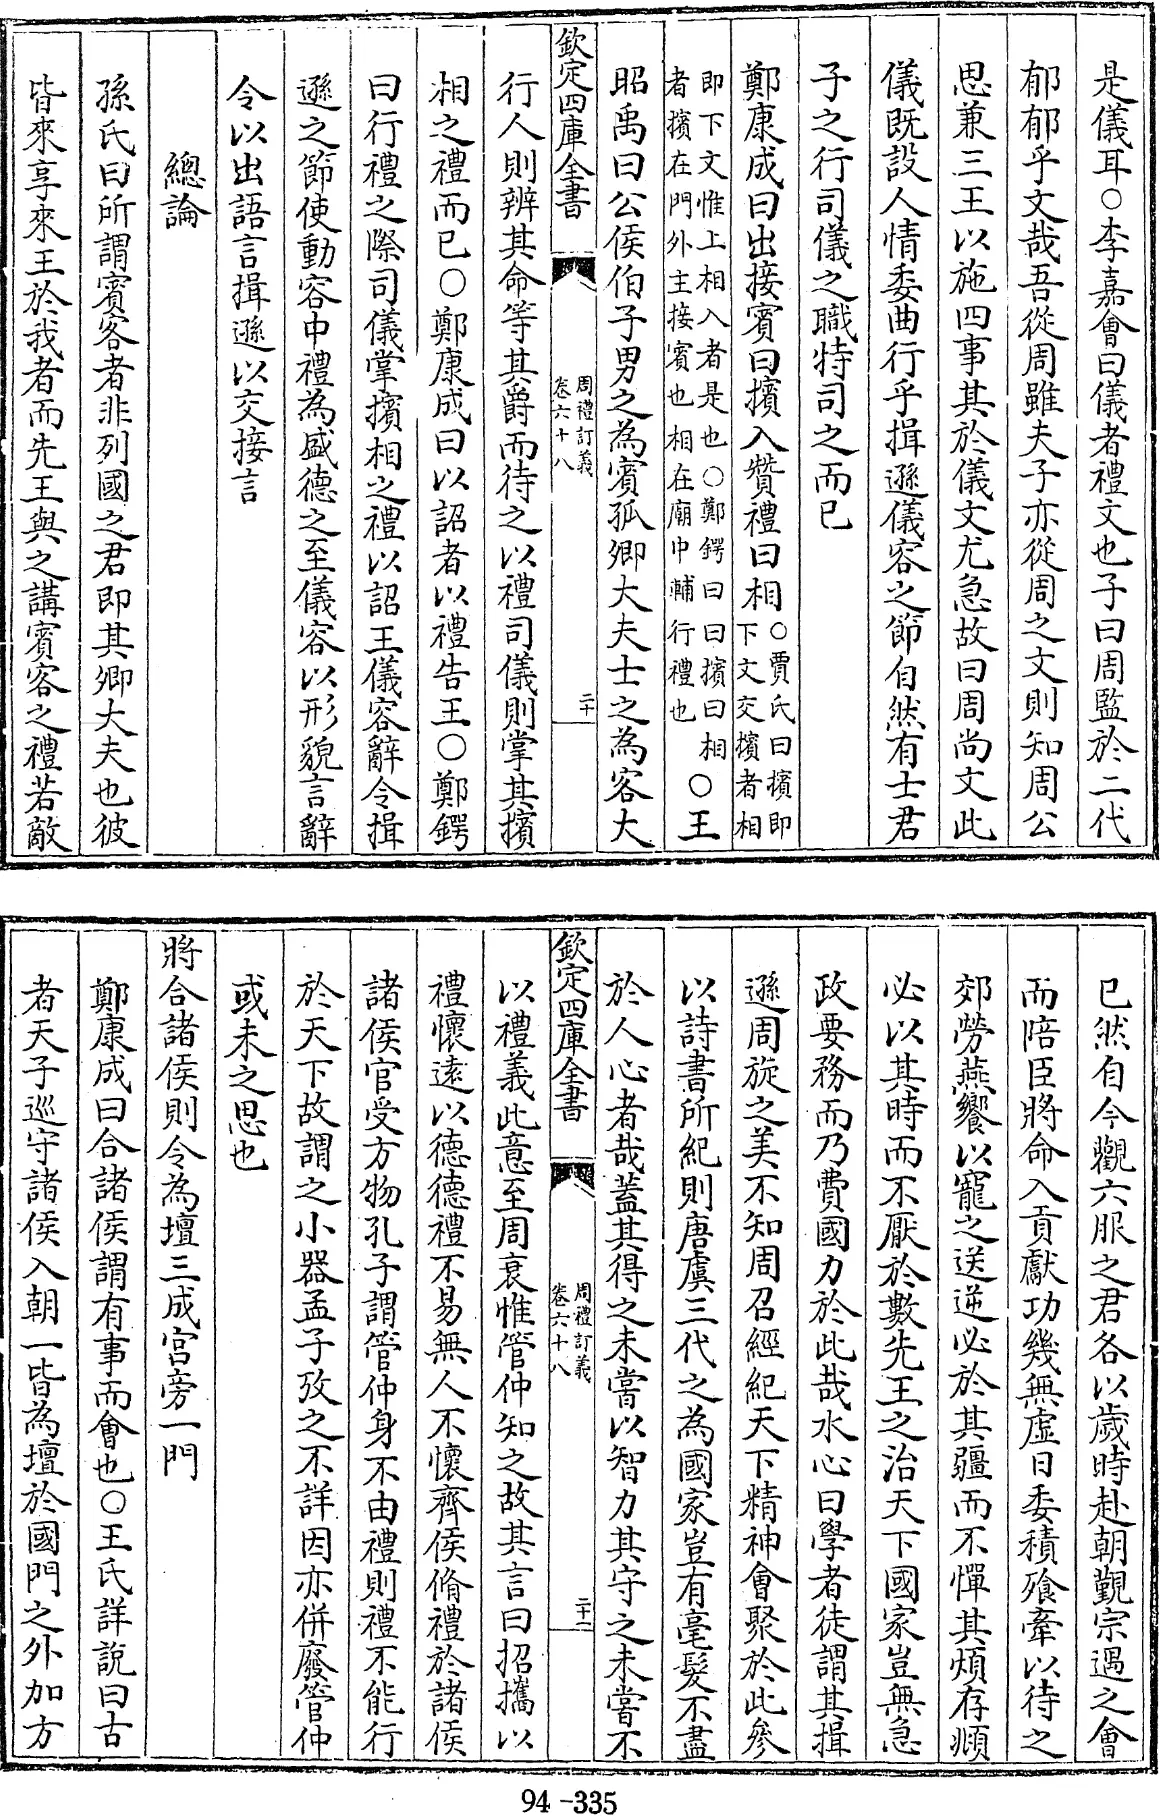 是儀耳○李嘉會曰儀者禮文也子曰周監於二代
郁郁乎文哉吾從周雖夫子亦從周之文則知周公
思兼三王以施四事其於儀文尤急故曰周尚文此
儀既設人情委曲行乎揖遜儀容之節自然有士君
子之行司儀之職特司之而已
鄭康成曰出接賓曰擯入贊禮曰相○賈氏曰擯即
下文交擯者相
即下文惟上相入者是也○鄭鍔曰曰擯曰相
者擯在門外主接賓也相在廟中輔行禮也
○王
昭禹曰公侯伯子男之為賓孤卿大夫士之為客大
欽定四庫全書
周禮訂義
卷六十八
二十
行人則辨其命等其爵而待之以禮司儀則掌其擯
相之禮而已○鄭康成曰以詔者以禮告王○鄭鍔
曰行禮之際司儀掌擯相之禮以詔王儀容辭令揖
遜之節使動容中禮為盛德之至儀容以形貌言辭
令以出語言揖遜以交接言
總論
孫氏曰所謂賓客者非列國之君即其卿大夫也彼
皆來享來王於我者而先王與之講賓客之禮若敵
已然自今觀六服之君各以歲時赴朝覲宗遇之會
而陪臣將命入貢獻功幾無虛日委積飱牽以待之
郊勞燕饗以寵之送逆必於其疆而不憚其煩存頫
必以其時而不厭於數先王之治天下國家豈無急
政要務而乃費國力於此哉水心曰學者徒謂其揖
遜周旋之美不知周召經紀天下精神會聚於此參
以詩書所紀則唐虞三代之為國家豈有毫髮不盡
於人心者哉蓋其得之未嘗以智力其守之未嘗不
欽定四庫全書
周禮訂義
卷六十八
二十一
以禮義此意至周衰惟管仲知之故其言曰招攜以
禮懷遠以德德禮不易無人不懷齊侯脩禮於諸侯
諸侯官受方物孔子謂管仲身不由禮則禮不能行
於天下故謂之小器孟子攷之不詳因亦併廢管仲
或未之思也
將合諸侯則令為壇三成宫旁一門
鄭康成曰合諸侯謂有事而會也○王氏詳說曰古
者天子巡守諸侯入朝一皆為壇於國門之外加方
94-335